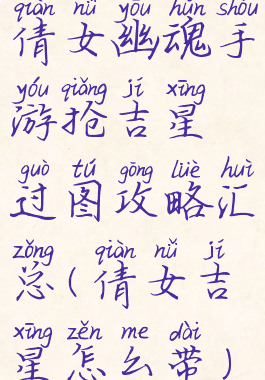 qiàn nǚ yōu hún shǒu
倩女幽魂手
yóu qiǎng jí xīng
游抢吉星
guò tú gōng lüè huì
过图攻略汇
zǒng qiàn nǚ jí
总(倩女吉
xīng zěn me dài
星怎么带)